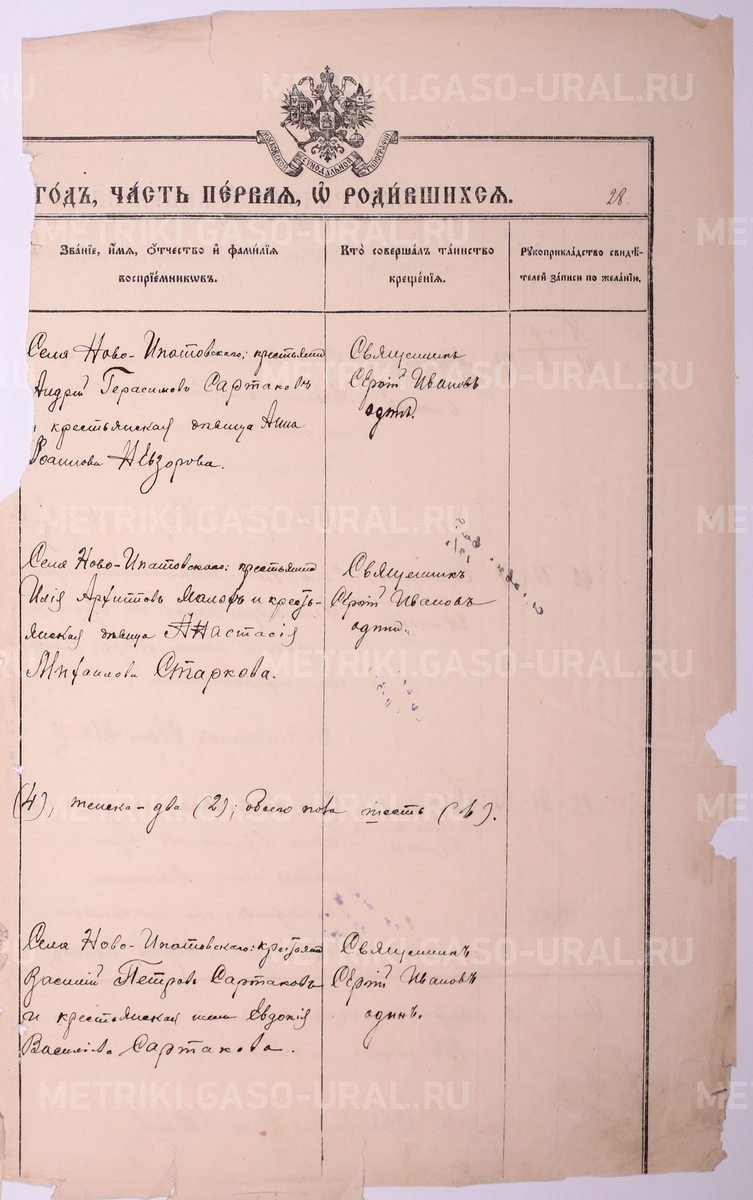 METRIKI.GASO-URAL.RU
МОСКОВСКОЙ СѴНОДАЛЬНОЙ ТИПОГРАФІИ
ГО́ДЪ, ЧА́СТЬ ПЕ́РВАЯ, Ѡ҆ РОДИ́ВШИХСЯ.
28.
Зва́нїе, и҆́мя, ѻ҆́тчество и҆ фамі́лїя
воспрїе́мникѡвъ.
Кто̀ соверша́лъ та́инство
креще́нїя.
Рꙋкоприкла́дство свидѣ́-
телей за́писи по жела́нїю.
Села Ново-Ипатовскаго: крестьянинъ
Андрей Герасимовъ Сартаковъ
и крестьянская дѣвица Анна
Іоаннова Нѣвзорова.
Священникъ
Сергій Ивановъ
одинъ.
Села Ново-Ипатовскаго: крестьянинъ
Илія Архиповъ Малофѣ и кресть-
янская дѣвица Анастасія
Михаилова Старкова.
Священникъ
Сергій Ивановъ
одинъ.
(4), женска-два (2); обоего пола шесть (6).
Села Ново-Ипатовскаго: крестьянинъ
Василій Петровъ Сартаковъ
и крестьянская жена Евдокія
Василіева Сартакова.
Священникъ
Сергій Ивановъ
одинъ.